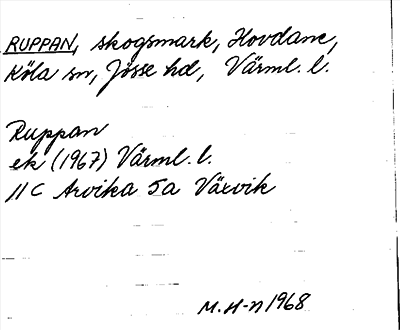 RUPPAN, skogsmark, Hovdane,
Köla sn, Jösse hd, Värml. l.
Ruppan
ek (1967) Värml. l.
11C Arvika 5a Växvik
M.H-n 1968